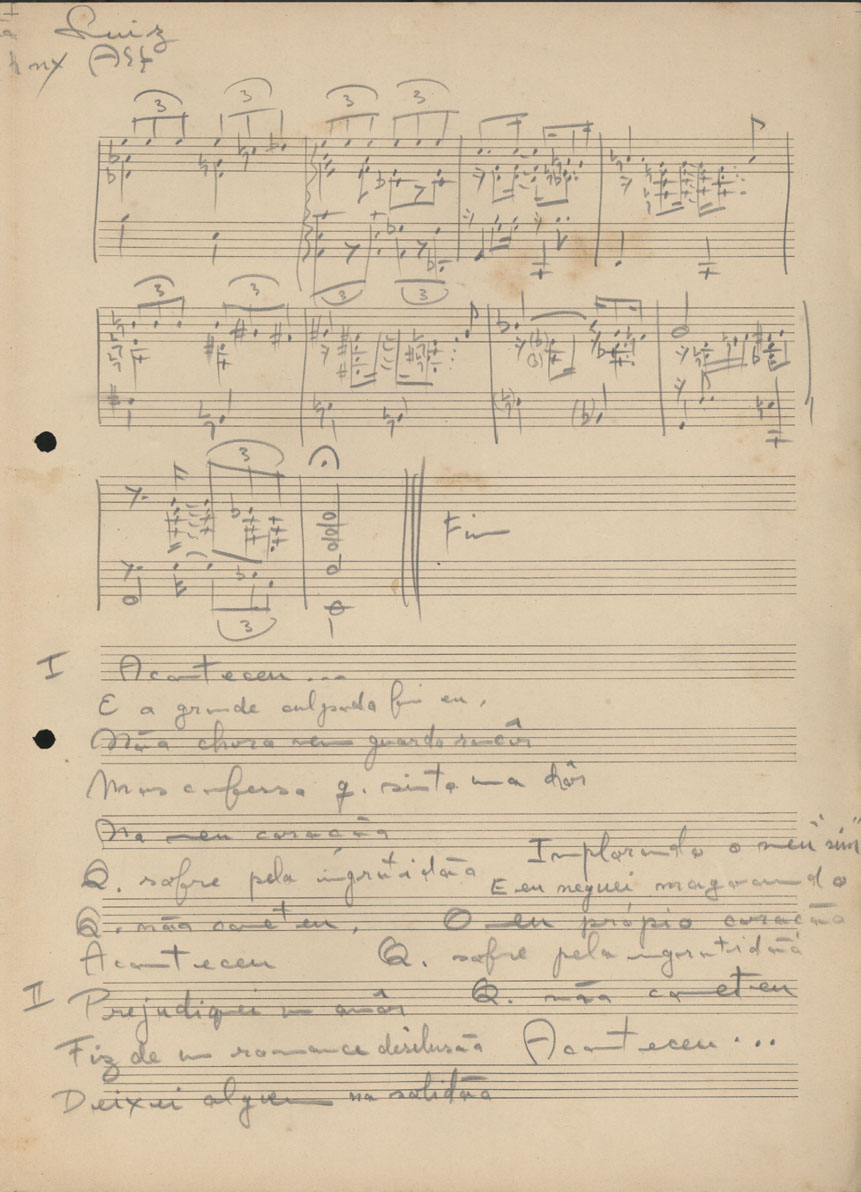 Luiz
3 3 3 3
3 3 3 3
3
Fim
3
I Aconteceu...
E a grande culpada fui eu,
Não choro nem guardo rancôr
Mas confesso q. sinto uma dôr
No meu coração
Q. sofre pela ingratidão
Q. não cometeu,
Aconteceu
II Prejudiquei um amôr
Fiz de um romance desilusão
Deixei alguem na solidão
Implorando o meu "sim"
E eu neguei magoando
O meu própio coração
Q. sofre pela ingratidão
Q. não cometeu
Aconteceu...